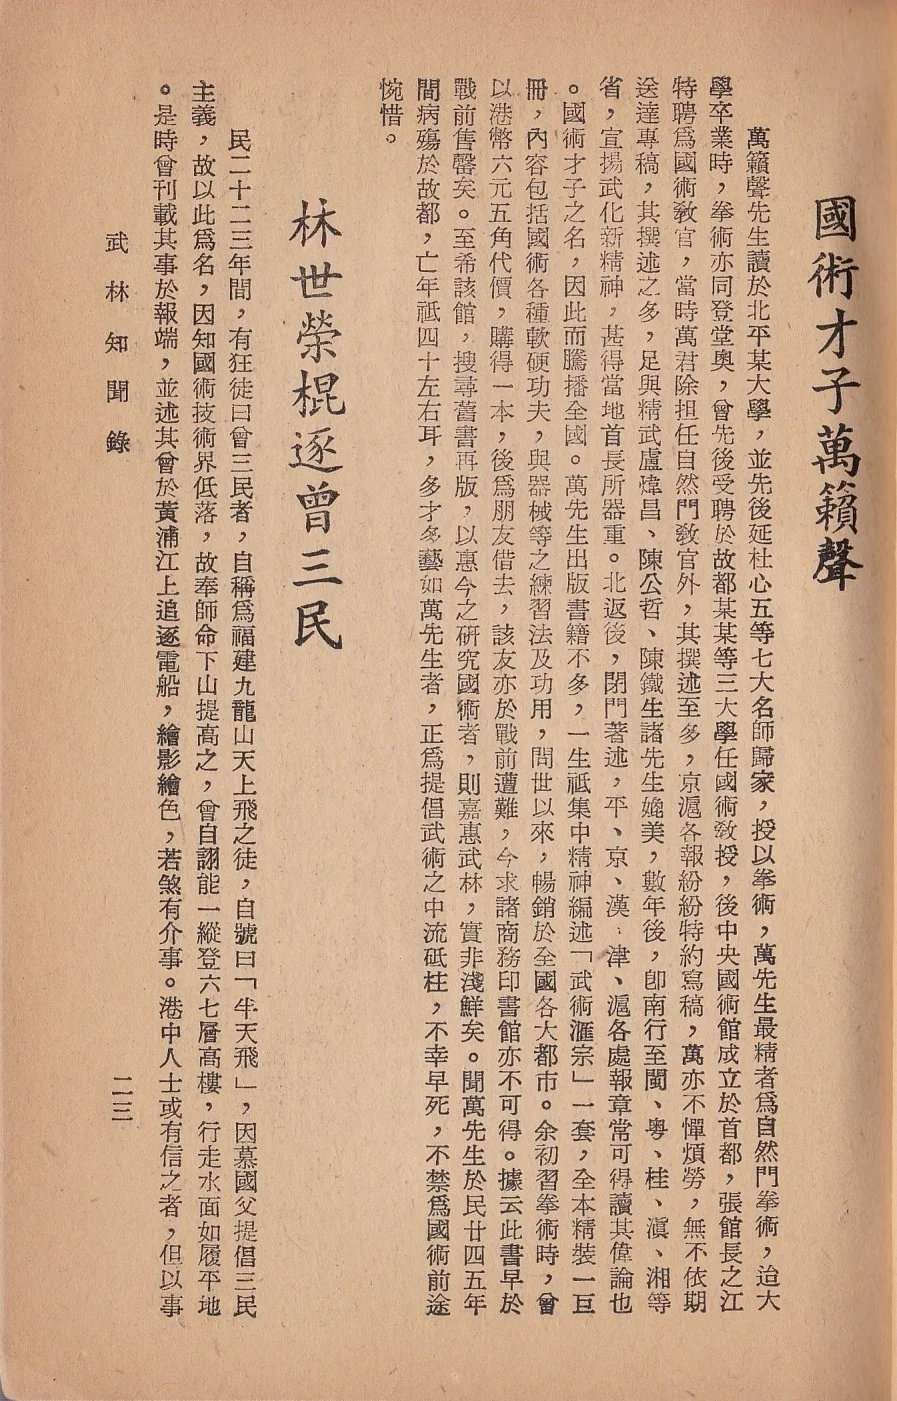 國術才子萬籟聲
萬籟聲先生讀於北平某大學，並先後延杜心五等七大名師歸家，授以拳術，萬先生最精者爲自然門拳術，迨大
學卒業時，拳術亦同登堂奧，曾先後受聘於故都某某等三大學任國術敎授，後中央國術館成立於首都，張館長之江
特聘爲國術敎官，當時萬君除担任自然門敎官外，其撰述至多，京滬各報紛紛特約寫稿，萬亦不憚煩勞，無不依期
送達專稿，其撰述之多，足與精武盧煒昌、陳公哲、陳鐵生諸先生媲美，數年後，卽南行至閩、粤、桂、滇、湘等
省，宣揚武化新精神，甚得當地首長所器重。北返後，閉門著述，平、京、漢、津、滬各處報章常可得讀其偉論也
。國術才子之名，因此而騰播全國。萬先生出版書籍不多，一生祗集中精神編述「武術滙宗」一套，全本精裝一巨
冊，內容包括國術各種軟硬功夫，與器械等之練習法及功用，問世以來，暢銷於全國各大都市。余初習拳術時，曾
以港幣六元五角代價，購得一本，後爲朋友借去，該友亦於戰前遭難，今求諸商務印書館亦不可得。據云此書早於
戰前售罄矣。至希該館，搜尋舊書再版，以惠今之硏究國術者，則嘉惠武林，實非淺鮮矣。聞萬先生於民廿四五年
間病殤於故都，亡年祗四十左右耳，多才多藝如萬先生者，正爲提倡武術之中流砥柱，不幸早死，不禁爲國術前途
惋惜。
林世榮棍逐曾三民
民二十二三年間，有狂徒曰曾三民者，自稱爲福建九龍山天上飛之徒，自號曰「半天飛」，因慕國父提倡三民
主義，故以此爲名，因知國術技術界低落，故奉師命下山提高之，曾自詡能一縱登六七層高樓，行走水面如履平地
。是時曾刊載其事於報端，並述其曾於黃浦江上追逐電船，繪影繪色，若煞有介事。港中人士或有信之者，但以事
武林知聞錄
二三